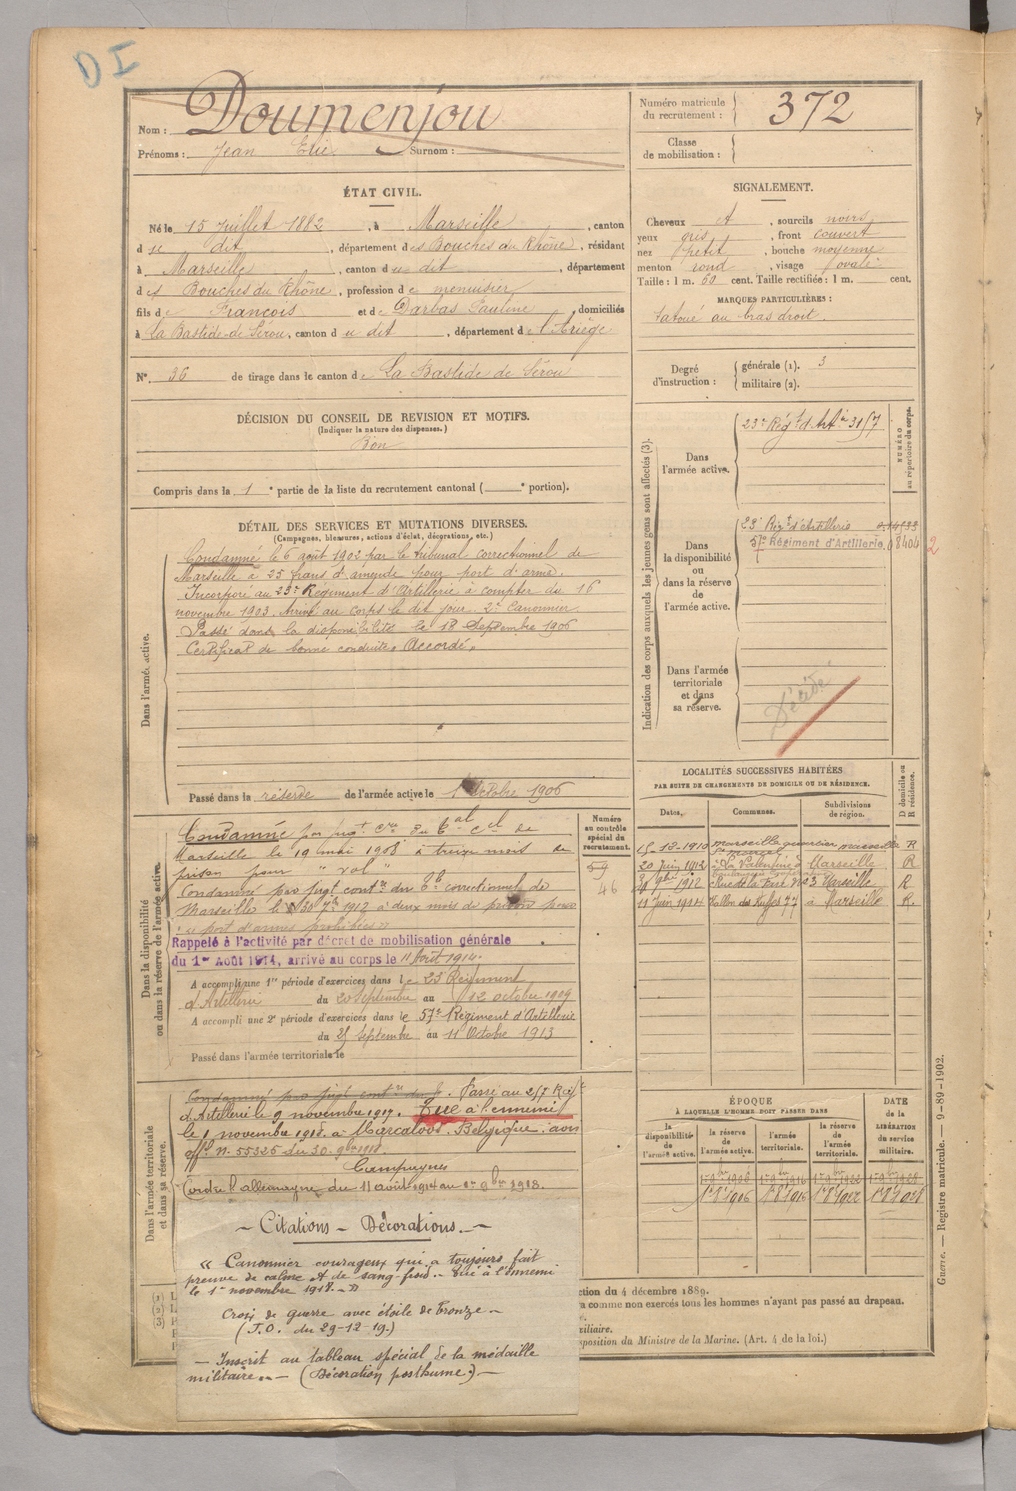 DI
Nom : Doumenjou
Prénoms : Jean Elie Surnom :
Numéro matricule du recrutement : 372
Classe de mobilisation :
ÉTAT CIVIL.
Né le 15 Juillet 1882, à Marseille, canton
du dit, département des Bouches du Rhône, résidant
à Marseille, canton du dit, département
des Bouches du Rhône, profession de menuisier
fils de François et de Darbas Pauline, domiciliés
à la Bastide de Sérou, canton du dit, département de l'Ariège
N° 36 de tirage dans le canton de La Bastide de Sérou
SIGNALEMENT.
Cheveux , sourcils noirs
yeux gris, front couvert
nez petit, bouche moyenne
menton rond, visage ovale
Taille : 1 m. 60 cent. Taille rectifiée : 1 m. cent.
MARQUES PARTICULIÈRES :
tatoué au bras droit
Degré d'instruction : générale (1). 3
militaire (2).
DÉCISION DU CONSEIL DE REVISION ET MOTIFS.
(Indiquer la nature des dispenses.)
Bon
Compris dans la 1e partie de la liste du recrutement cantonal ( e portion).
DÉTAIL DES SERVICES ET MUTATIONS DIVERSES.
(Campagnes, blessures, actions d'éclat, décorations, etc.)
Dans l'armée active.
Condamné le 6 août 1902 par le tribunal correctionnel de
Marseille à 25 francs d'amende pour port d'arme.
Incorporé au 23e Régiment d'Artillerie à compter du 16
novembre 1903. Arrivé au corps le dit jour. 2e Canonnier
Passé dans la disponibilité le 18 Septembre 1906
Certificat de bonne conduite "Accordé"
Passé dans la réserve de l'armée active le 1 Octobre 1906
Indication des corps auxquels les jeunes gens sont affectés (3).
NUMÉRO au répertoire du corps.
Dans l'armée active.
23e Régt d'Artie 31/7
Dans la disponibilité ou dans la réserve de l'armée active.
23e Régt d'Artillerie
57e Régiment d'Artillerie 08404 2
Dans l'armée territoriale et dans sa réserve.
Décédé
Dans la disponibilité ou dans la réserve de l'armée active.
Numéro au contrôle spécial du recrutement.
59
46
Condamné par jugt cre du bal cel de
Marseille le 19 mai 1908 à treize mois de
prison pour "vol"
Condamné par jugt contre du bl correctionnel de
Marseille le 30 7bre 1912 à deux mois de prison pour
port d'armes prohibées"
Rappelé à l'activité par décret de mobilisation générale
du 1er Août 1914, arrivé au corps le 11 août 1914.
A accompli une 1re période d'exercices dans le 23 Régiment
d'Artillerie du 20 Septembre au 12 octobre 1909
A accompli une 2e période d'exercices dans le 57e Régiment d'Artillerie
du 25 Septembre au 11 Octobre 1913
Passé dans l'armée territoriale le
LOCALITÉS SUCCESSIVES HABITÉES
PAR SUITE DE CHANGEMENTS DE DOMICILE OU DE RÉSIDENCE.
Dates. Communes. Subdivisions de région. D domicile ou R résidence.
15-12-1910 Marseille quartier Marseille R
20 Juin 1912 La Valentine Marseille R
1912 Rue de la No 3 Marseille R
11 Juin 1914 Vallon des Auffes 77 à Marseille R.
Dans l'armée territoriale et dans sa réserve.
Condamné par jugt contre du b. Passé au 217 Régt
d'Artillerie le 9 novembre 1917. Tué à l'ennemi
le 1 novembre 1918. à Belgique. avis
offel n. 55325 du 30. 9bre 1918.
Campagnes
Contre l'allemagne du 11 août 1914 au 1er 9bre 1918.
~ Citations - Décorations. ~
« Canonnier courageux qui a toujours fait
preuve de calme et de sang-froid. - Tué à l'ennemi
le 1er novembre 1918. - »
Croix de guerre avec étoile de bronze -
(J.O. du 29-12-19.)
- Inscrit au tableau spécial de la médaille
militaire. - (Décoration posthume.) -
ÉPOQUE
À LAQUELLE L'HOMME DOIT PASSER DANS
la disponibilité de l'armée active. la réserve de l'armée active. l'armée territoriale. la réserve de l'armée territoriale.
DATE de la LIBÉRATION du service militaire.
1er 9bre 1906 1er 9bre 1916 1er 9bre 1922 1er 9bre 1928
ction du 4 décembre 1889.
a comme non exercés tous les hommes n'ayant pas passé au drapeau.
xiliaire.
sposition du Ministre de la Marine. (Art. 4 de la loi.)
Guerre. — Registre matricule. — 9-89-1902.